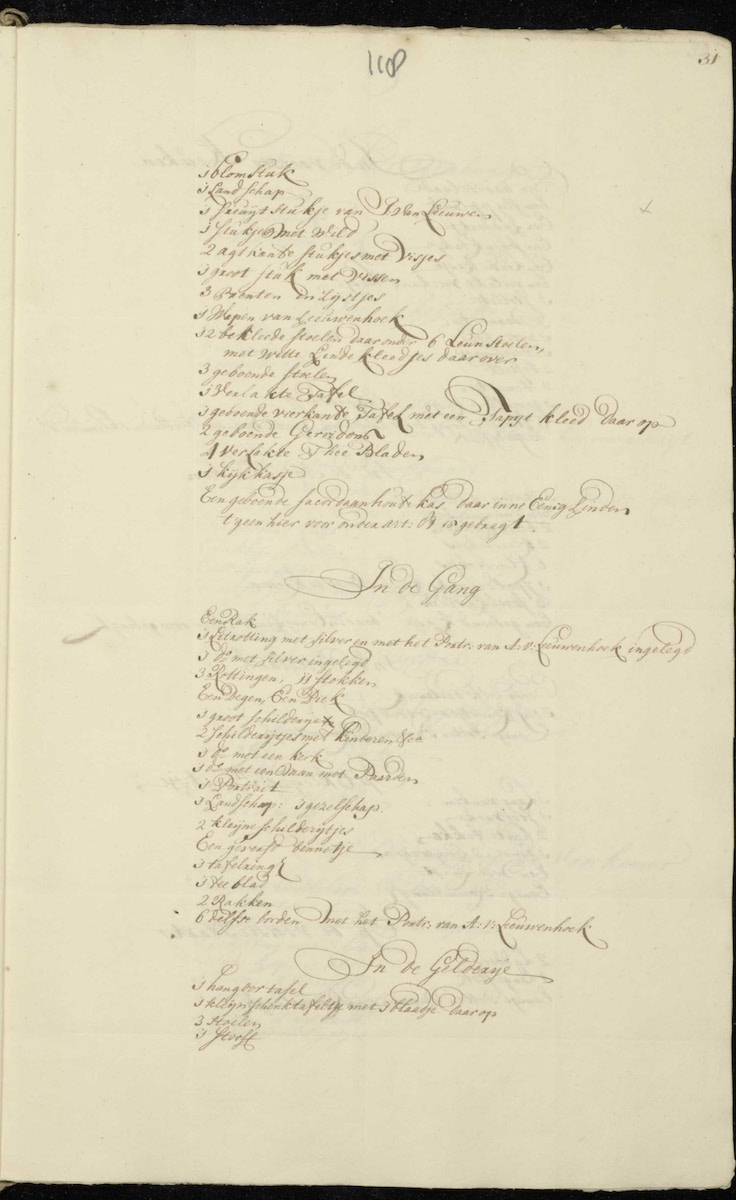 118
31
1 blom stuk
1 Landschap
1 fruijt stukje van J. Van Leeuwen
1 stukje met wild
2 agtkante stukjes met visjes
1 groot stuk met vissen
3 Prenten in Lijstjes
1 Wapen van Leeuwenhoek
12 bekleede stoelen daar onder 6 Leun stoelen,
met witte Linde kleedjes daar over
3 geboende stoelen
1 Verlakte Tafel
1 geboende vierkante Tafel met een Tapijt kleed daar op
2 geboende Geridons
4 verlakte Thee Bladen
1 kijk kasje
Een geboende sacerdaanhoute kas daar inne Eenig Linden
t geen hier voor onder art: is gebragt
In de Gang
Een Rak
1 Rotting met silver en met het Portr: van A: v: Leeuwenhoek ingelegd
1 do met silver ingelegd
3 Rottingen, 11 stokken
Een Degen, Een Piek
1 groot schilderije
2 schilderijtjes met kinderen &c
1 do met een kerk
1 do met een man met Paarden
1 Portrait
1 Landschap: 1 gezelschap
2 kleijne schilderijtjes
Een geverfd bennetje
1 tafelring
1 tee blad
2 Rakken
6 delfse borden met het Portr: van A: v: Leeuwenhoek
In de Gelderije
1 hangoor tafel
1 kleijn schenktafeltje met 1 blaadje daar op
3 stoelen
1 stooft